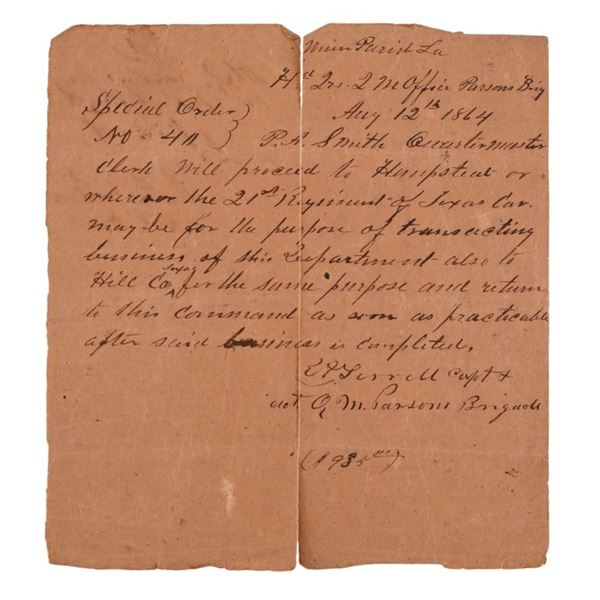 Winn Parish La
Hd Qrs. Q M Office Parsons Brig
Aug 12th 1864
Special Order
No 411
P. A. Smith Quartermaster
Clerk Will proceed to Hempstead or
wherever the 21st Regiment of Texas Cav.
may be for the purpose of transacting
business of this Department also to
Hill Co Texas for the same purpose and return
to this command as soon as practicable
after said business is completed.
Terrell Capt &
act. Q M. Parsons Brigade